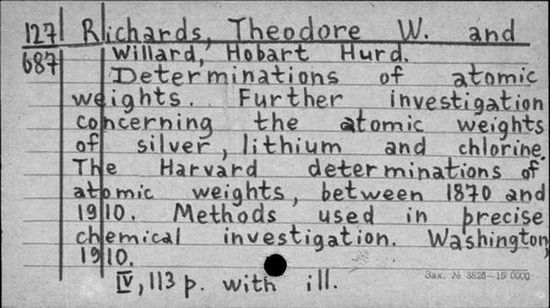 127 Richards, Theodore W. and
687 Willard, Hobart Hurd.
Determinations of atomic
weights. Further investigation
concerning the atomic weights
of silver, lithium and chlorine.
The Harvard determinations of
atomic weights, between 1870 and
1910. Methods used in precise
chemical investigation. Washington,
1910.
IV, 113 p. with ill.
Зак. № 3826—15 0000